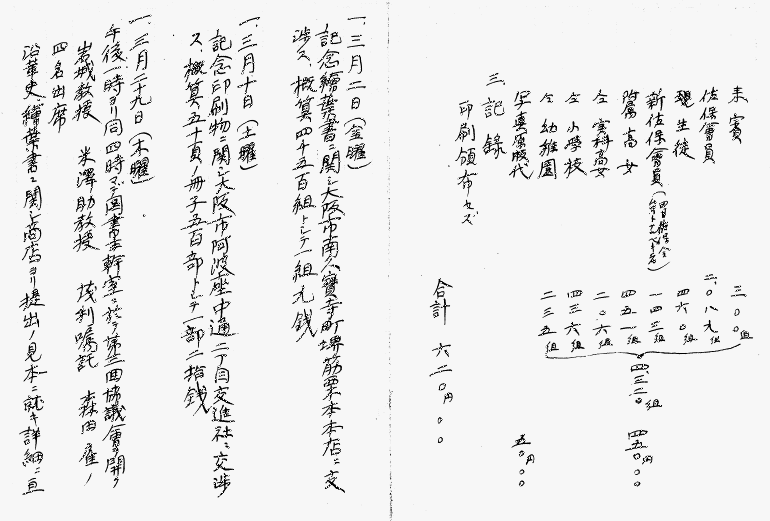 来賓 三〇〇組
佐保會員 二、〇八九組
現生徒 四六〇組
新佐保會員
附属高女 四五一組
仝 実科高女 二〇六組
仝 小学校 四三六組
仝 幼稚園 二三五組
四、三二〇組 四五〇円〇〇
写真原版代 五〇円〇〇
三、記録
印刷頒布セズ
合計 六二〇円〇〇
一、三月二日（金曜）
記念繪葉書ニ関シ大阪市南区寳寺町堺筋栗本本店ニ交
渉ス、概算四千五百組トシテ一組九銭
一、三月十日（土曜）
記念印刷物ニ関シ大阪市阿波座中通二丁目交進社ニ交渉
ス、概算五十頁ノ冊子五百部トシテ一部二拾銭
一、三月二九日（木曜）
午後一時ヨリ同四時マデ図書室幹室ニ於テ第三回協議會ヲ開ク
岩城教授 米澤助教授 茂利嘱託 森田雇ノ
四名出席
沿革史繪葉書ニ関シ商店ヨリ提出ノ見本ニ就キ詳細ニ亘